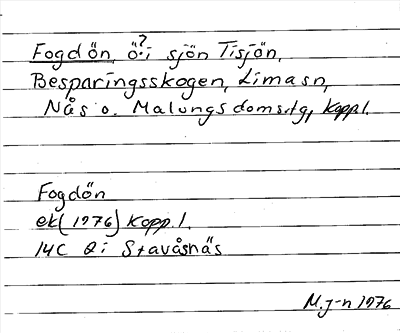 Fogdön, ö?i sjön Tisjön,
Besparingsskogen, Lima sn,
Nås o. Malungs doms.tg, Kopp.l.
Fogdön
ek (1976) Kopp.l.
14C 2i Stavåsnäs
M.J-n 1976